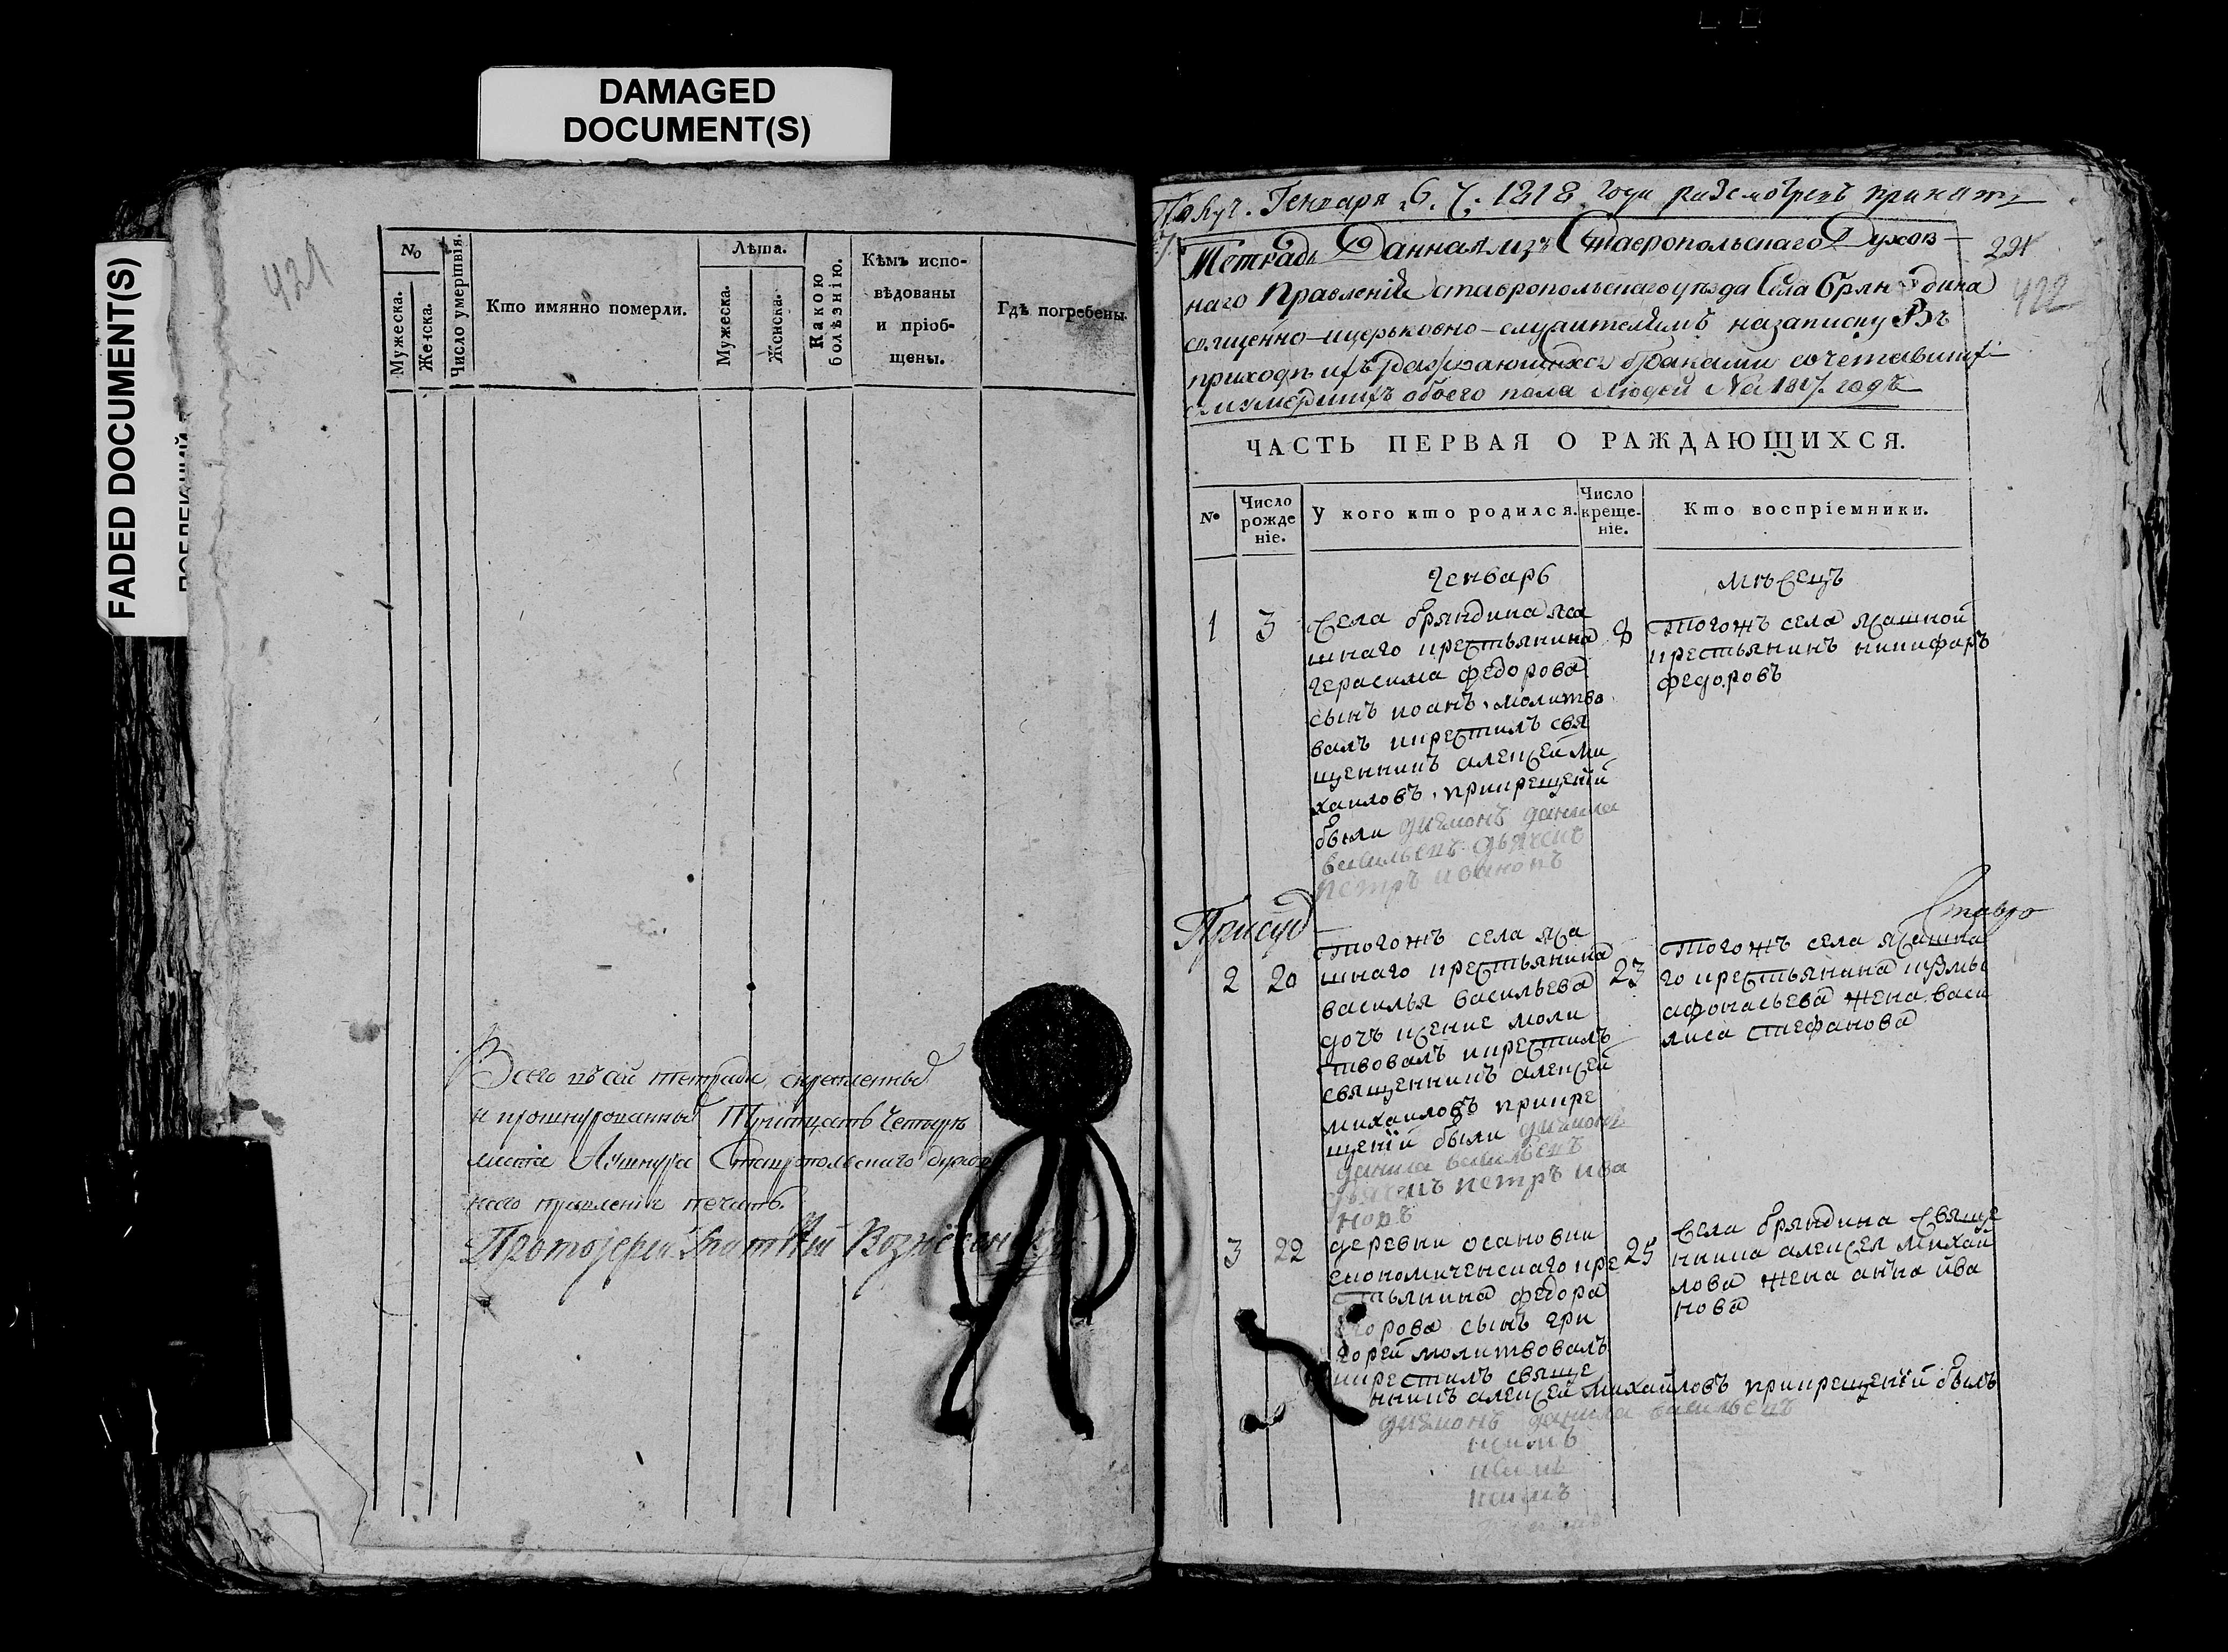 DAMAGED
DOCUMENT(S)
FADED DOCUMENT(S)
421
№
Мужеска.
Женска.
Число умертвія.
Кто имянно померли.
Лѣта.
Мужеска.
Женска.
Какою
болѣзнію.
Кѣмъ испо-
вѣдованы
и пріоб-
щены.
Гдѣ погребены.
Всего въ сей тетради скрепленныхъ
и прошнурованныхъ Тритцать четыре
листа Ставропольскаго духов
наго правленія печать.
Протоіерей
Генваря 6. 1818 года
Тетрадь Данная изъ Ставропольскаго Духов-
наго Правленія ставропольскаго уѣзда Села Бряндина
священно-ицерьковно-служителямъ назаписку Въ
приходѣ ихъ раждающихся браками сочетавших
и умершихъ обоего пола людей На 1817. годъ
422
ЧАСТЬ ПЕРВАЯ О РАЖДАЮЩИХСЯ.
№
Число
рожде
ніе.
У кого кто родился.
Число
креще-
ніе.
Кто воспріемники.
Генварь мѣсецъ
1 3
Села бряндина яса
шнаго крестьянина
герасима федорова
сынъ иоанъ, молитво
валъ икрестилъ свя
щенникъ алексей ми
хаиловъ, прикрещеніи
были дияконъ данила
васильевъ дьячекъ
петръ ивановъ
8
тогожъ села ясашной
крестьянинъ никифаръ
федоровъ
Присуд
Ставро
2 20
тогожъ села яса
шнаго крестьянина
василья васильева
дочь ксение моли
твовалъ икрестилъ
священникъ алексей
михаиловъ прикре
щеніи были дияконъ
данила васильевъ
дьячекъ петръ ива
новъ
23
тогожъ села ясашна
го крестьянина кузмы
афонасьева жена васи
лиса стефанова
3 22
деревни осановки
економическаго кре
стьянина федора
егорова сынъ гри
горей молитвовалъ
икрестилъ свяще
нникъ алексей михайловъ прикрещеніи былъ
дияконъ данила васильевъ
25
села бряндина свяще
нника алексея михаи
лова жена анна ива
нова